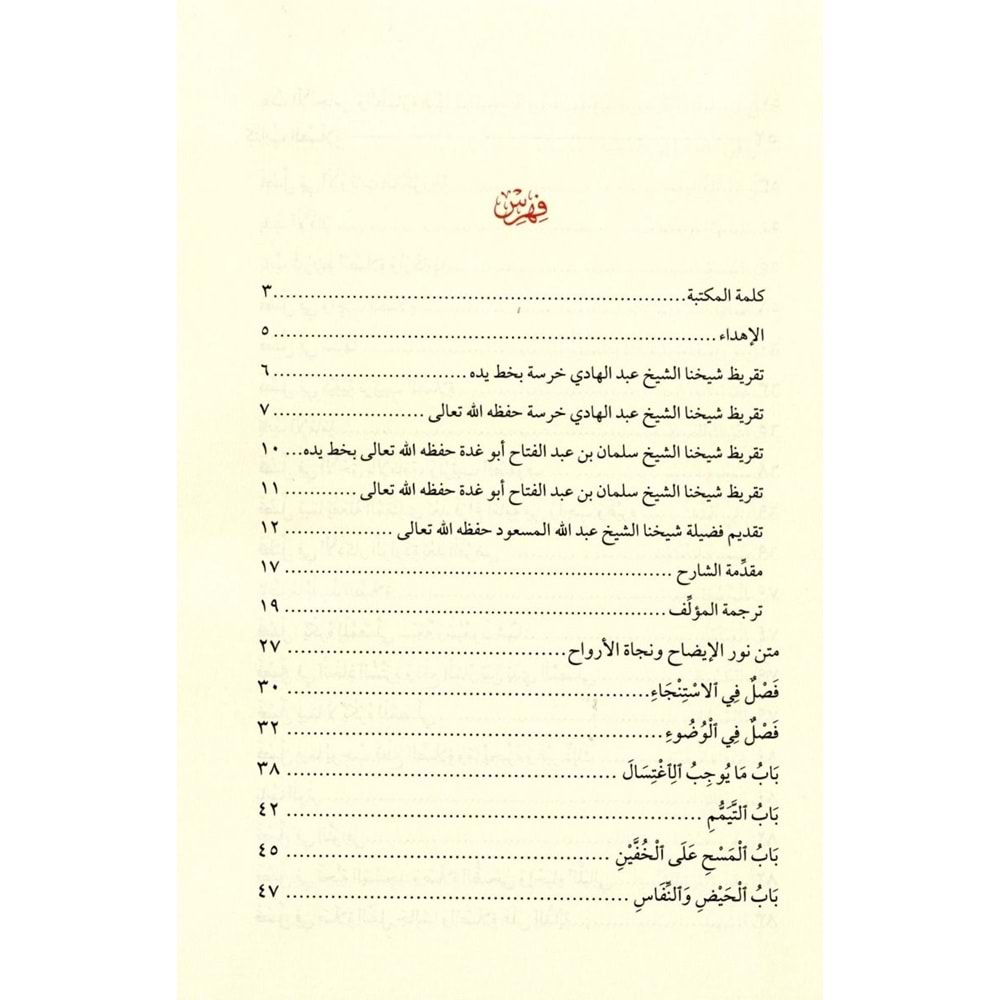 فهرس
كلمة المكتبة ٣
الإهداء ٥
تقريظ شيخنا الشيخ عبد الهادي خرسة بخط يده ٦
تقريظ شيخنا الشيخ عبد الهادي خرسة حفظه الله تعالى ٧
تقريظ شيخنا الشيخ سلمان بن عبد الفتاح أبو غدة حفظه الله تعالى بخط يده... ١٠
تقريظ شيخنا الشيخ سلمان بن عبد الفتاح أبو غدة حفظه الله تعالى ١١
تقديم فضيلة شيخنا الشيخ عبد الله المسعود حفظه الله تعالى ١٢
مقدِّمة الشارح ١٧
ترجمة المؤلِّف ١٩
متن نور الإيضاح ونجاة الأرواح ٢٧
فَصْلٌ فِي ٱلاسْتِنْجَاءِ ٣٠
فَصْلٌ فِي ٱلْوُضُوءِ ٣٢
بَابُ مَا يُوجِبُ ٱلِاغْتِسَالَ ٣٨
بَابُ ٱلتَّيَمُّمِ ٤٢
بَابُ ٱلْمَسْحِ عَلَى ٱلْخُفَّيْنِ ٤٥
بَابُ ٱلْحَيْضِ وَٱلنِّفَاسِ ٤٧